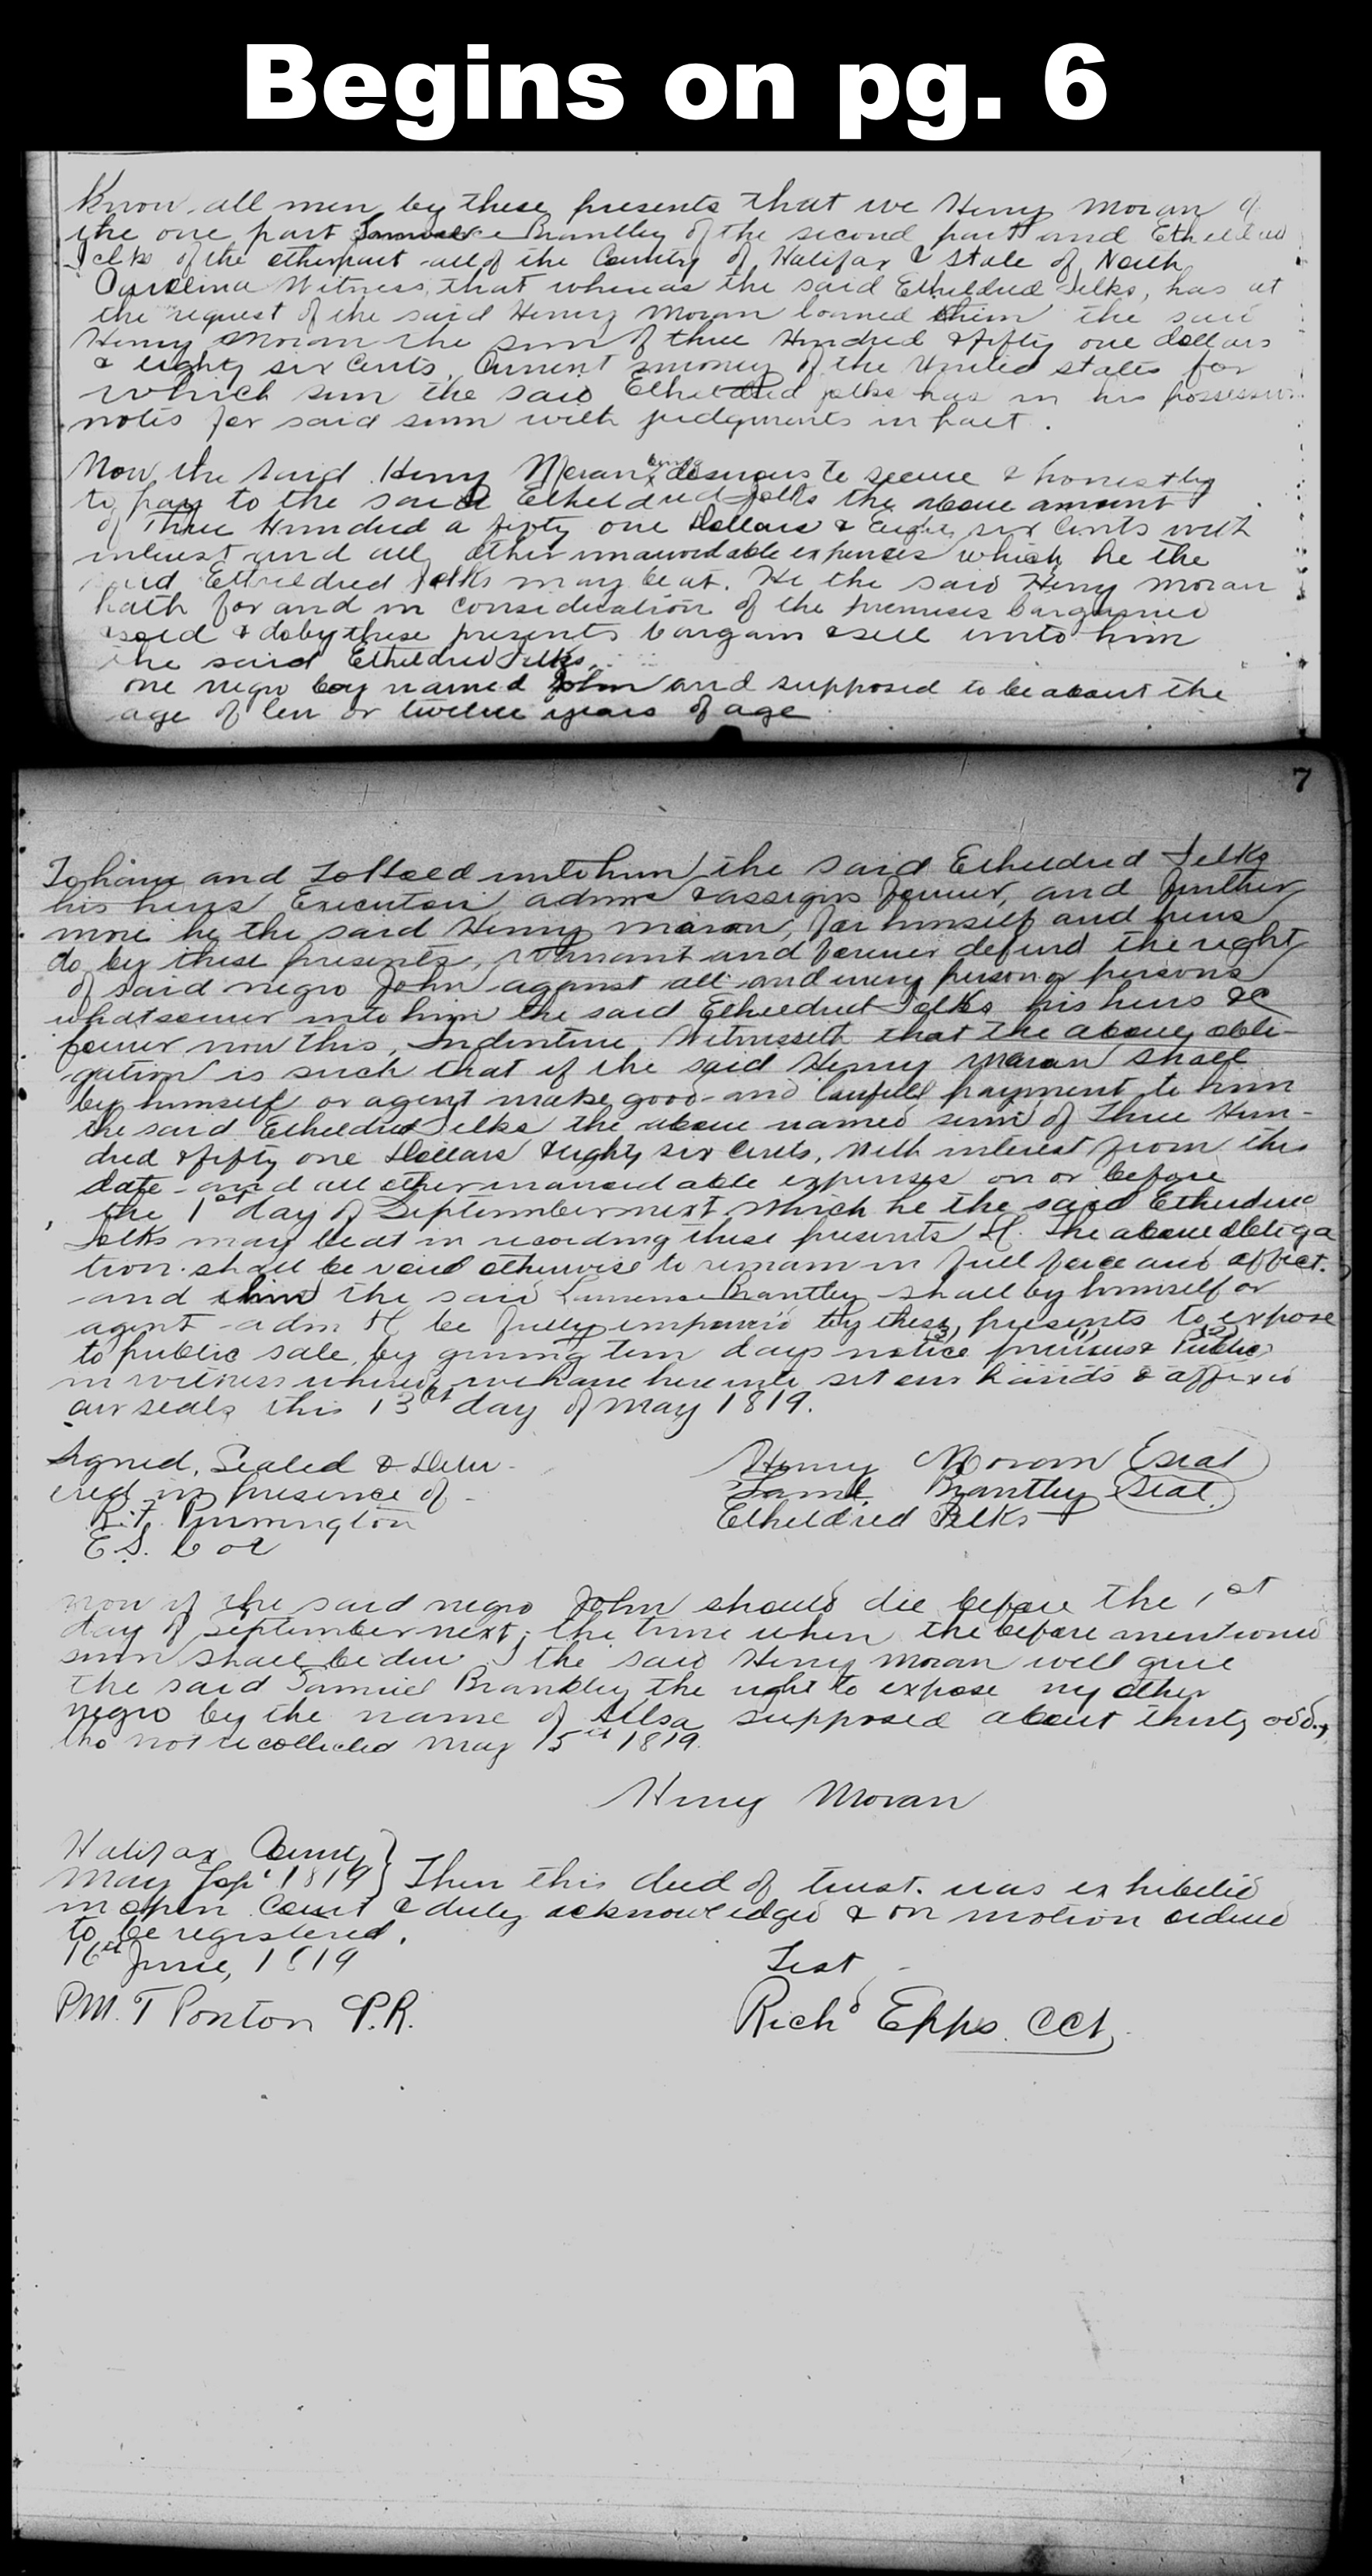 Begins on pg. 6
Know all men by these presents that we Henry Moran of
the one part Brantley of the second part and Etheldred
Jelks of the other part all of the County of Halifax & State of North
Carolina Witness, that whereas the said Etheldred Jelks, has at
the request of the said Henry Moran loaned him the said
Henry Moran the sum of three Hundred & fifty one dollars
& eighty six Cents, Current money of the United States for
which sum the said Etheldred Jelks has in his possession
notes for said sum with judgments in part.
Now the said Henry Moran being desirous to secure & honestly
to pay to the said Etheldred Jelks the above amount
of Three Hundred & fifty one Dollars & Eighty six Cents with
interest and all other unavoidable expenses which he the
said Etheldred Jelks may be at. He the said Henry Moran
hath for and in consideration of the premises bargained
& sold & do by these presents bargain & sell unto him
the said Etheldred Jelks,
one negro boy named John and supposed to be about the
age of ten or twelve years of age
7
To have and to Hold unto him the said Etheldred Jelks
his heirs Executors, admrs & assigns forever, and further
more he the said Henry Moran, for himself and heirs
do by these presents, warrant and forever defend the right
of said negro John against all and every person or persons
whatsoever unto him the said Etheldred Jelks his heirs &c
forever now this, Indenture, Witnesseth that the above obli-
gation is such that if the said Henry Moran shall
by himself or agent make good and lawfull payment to him
the said Etheldred Jelks the above named sum of Three Hun-
dred & fifty one Dollars & eighty six Cents, with interest from this
date and all other unavoidable expenses on or before
the 1st day of September next which he the said Etheldred
Jelks may be at in recording these presents &c. The above obliga
tion shall be void otherwise to remain in full force and affect.
and then the said Brantley shall by himself or
agent adm &c be fully by these presents to expose
to public sale by giving ten days notice previous & Public
in witness whereof we have hereunto set our hands & affixed
our seals this 13th day of May 1819.
Signed, Sealed & Deliv-
ered in presence of
R. F. Purrington
E. S.
Henry Moran (Seal)
Saml. Brantley (Seal)
Etheldred Jelks
now if the said negro John should die before the 1st
day of September next; the time when the before mentioned
sum shall be due I the said Henry Moran will give
the said Samuel Brantley the right to expose my other
negro by the name of Ailsa supposed about thirty odd,
tho not recollected May 15th 1819.
Henry Moran
Halifax County }
May 1819 } Then this deed of trust was exhibited
in open Court & duly acknowledged & on motion ordered
to be registered.
16th June, 1819
Test
P.M. T Ponton P.R.
Richd Epps CCt.